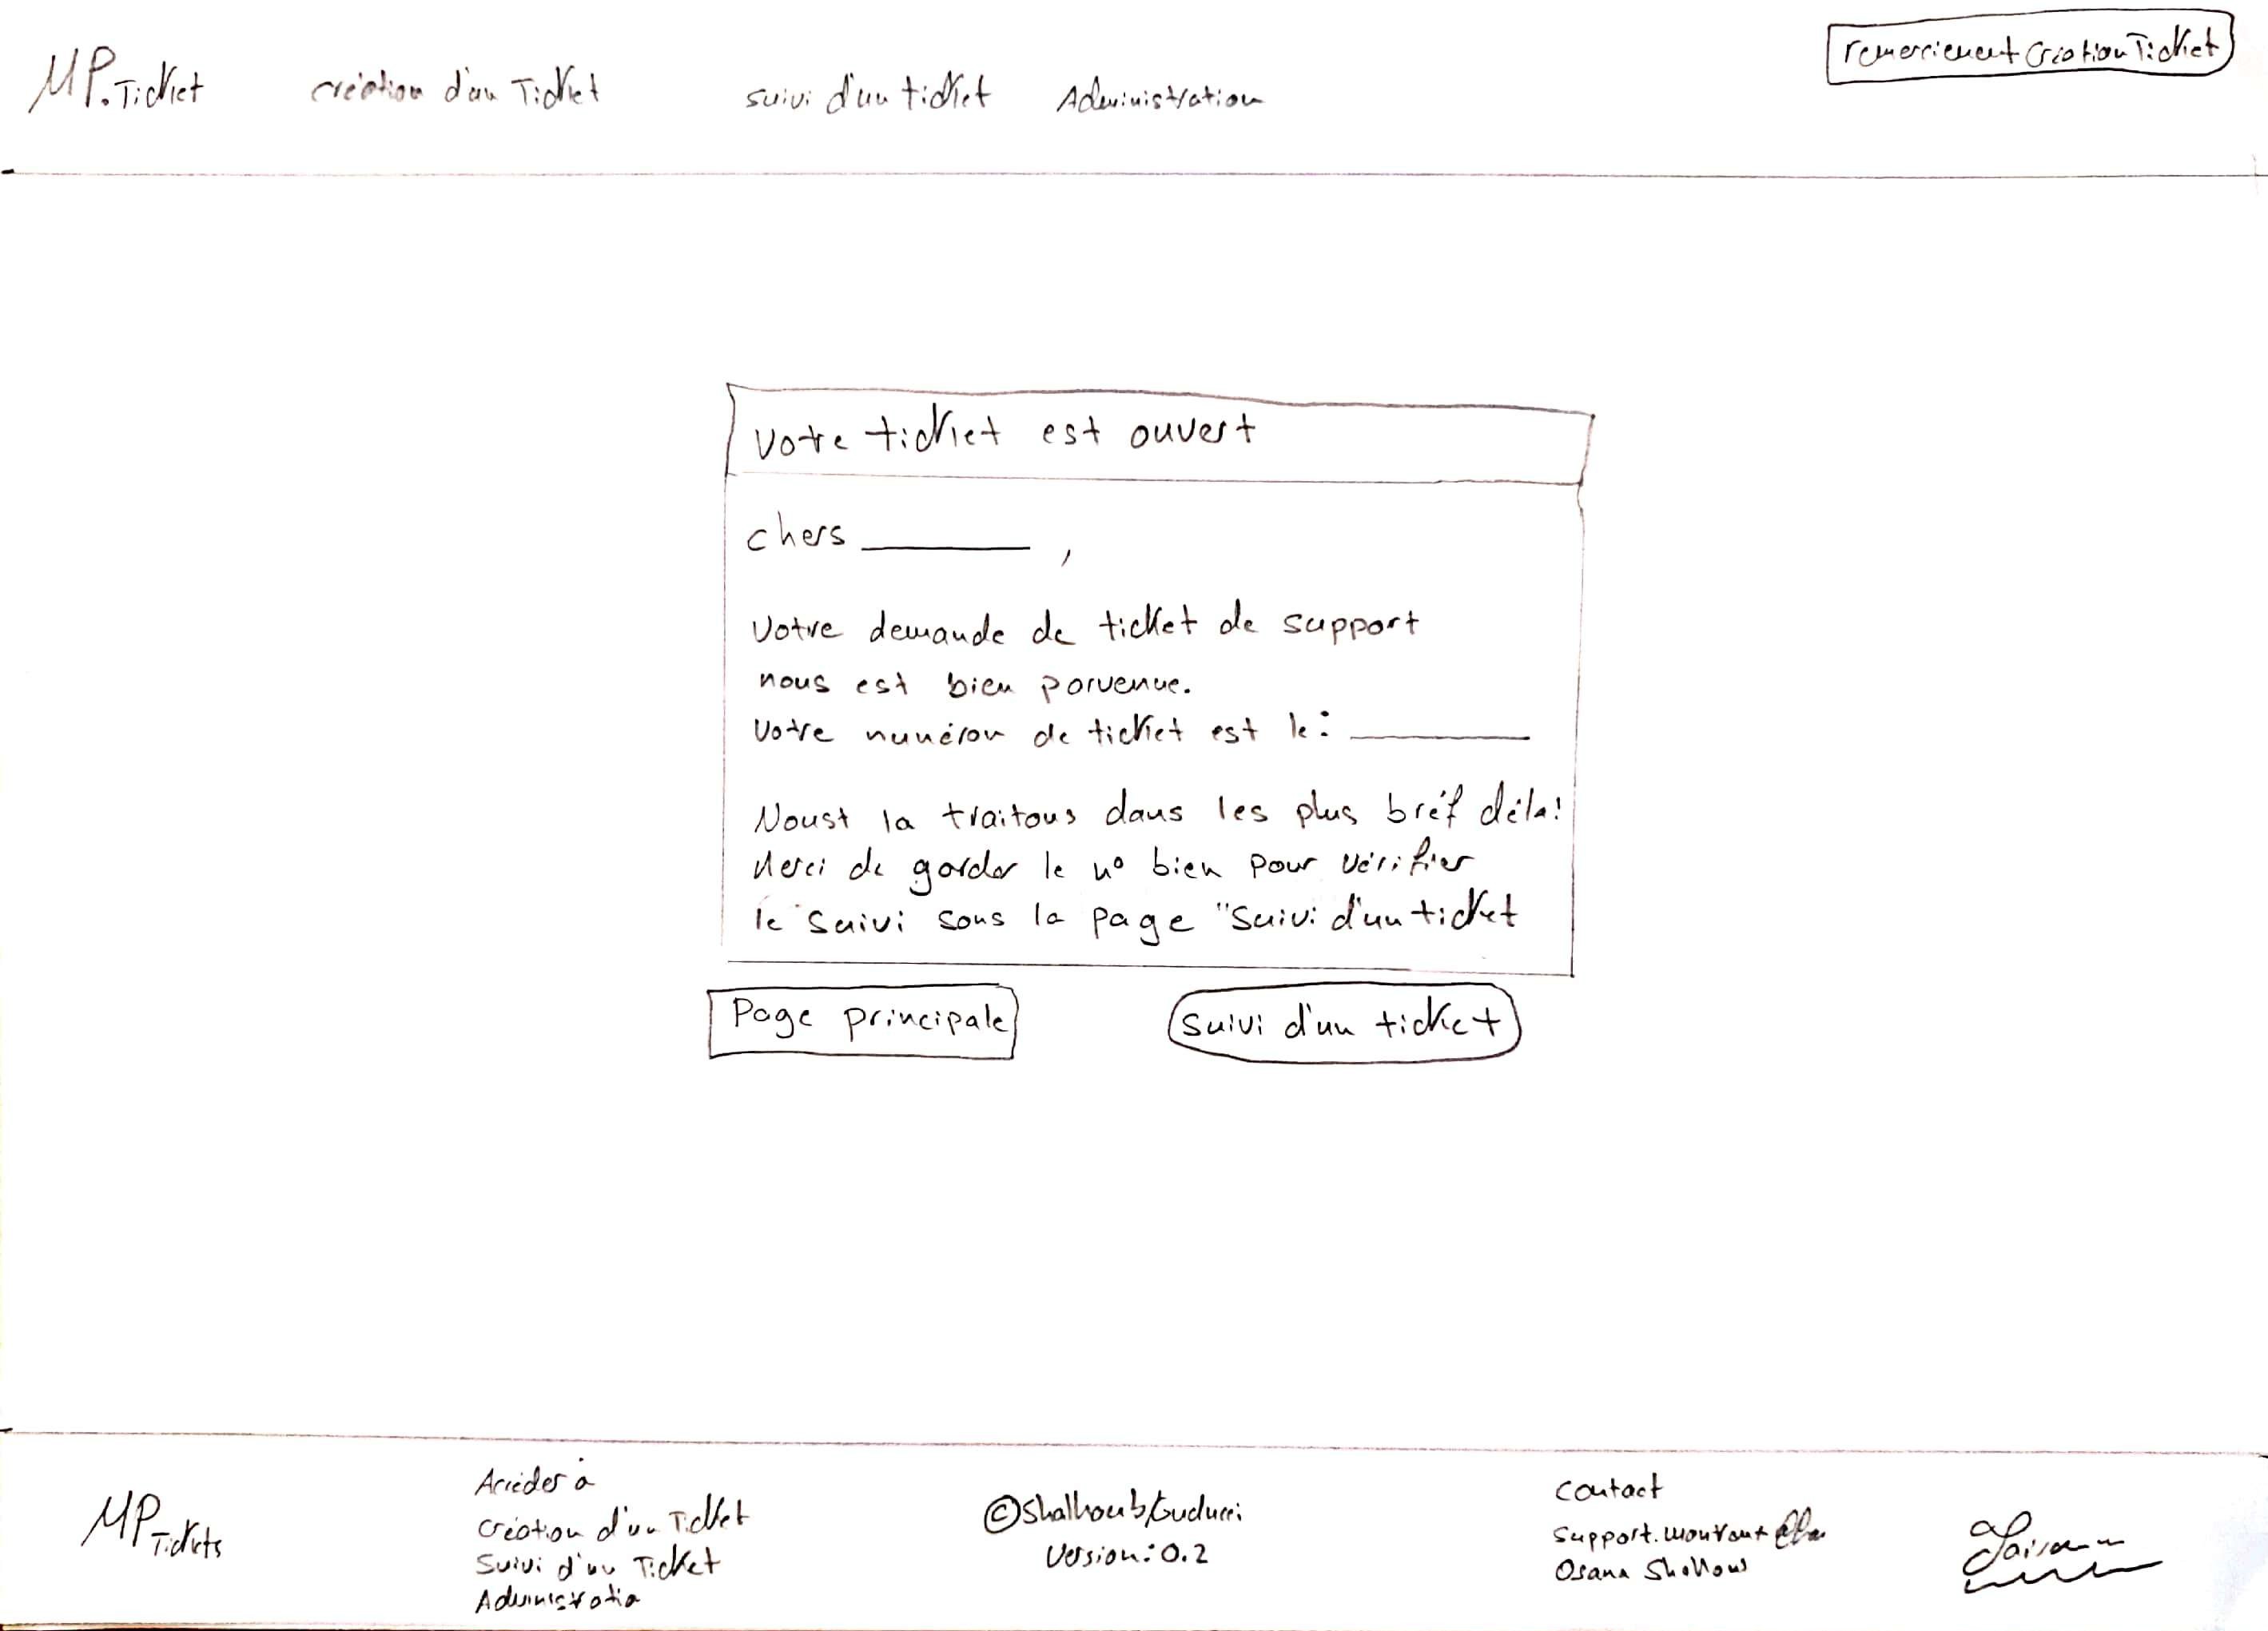 MP.Ticket
création d'un Ticket
suivi d'un ticket
Administration
remerciement Création Ticket
Votre ticket est ouvert
chers ________ ,
Votre demande de ticket de support
nous est bien parvenue.
Votre numéron de ticket est le: ________
Noust la traitons dans les plus bréf déla!
Merci de garder le n° bien pour vérifier
le suivi sous la page "Suivi d'un ticket
Page principale
Suivi d'un ticket
MP Tickets
Accéder à
Création d'un Ticket
Suivi d'un Ticket
Administratio
©Shalhoub/Guducci
Version: 0.2
Contact
Support.
Osana